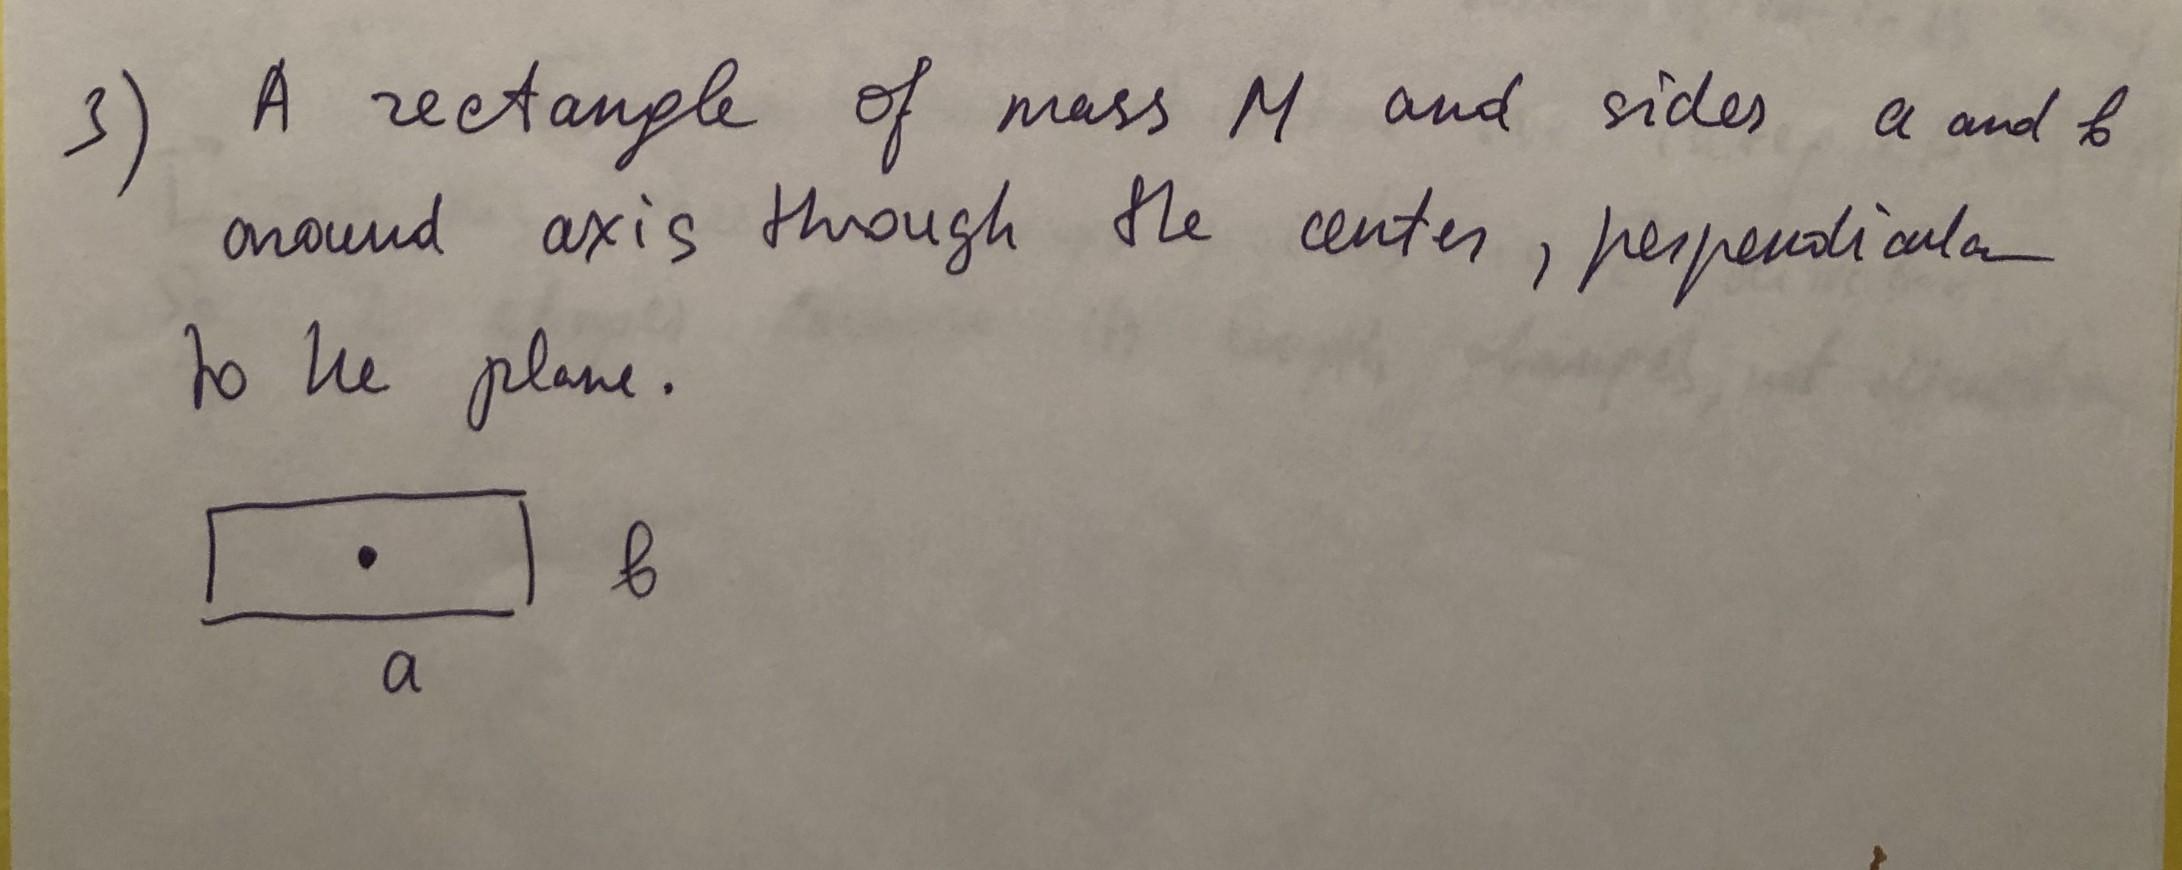 3) A rectangle of mass M and sides a and b
around axis through the center, perpendicular
to the plane.
b
a